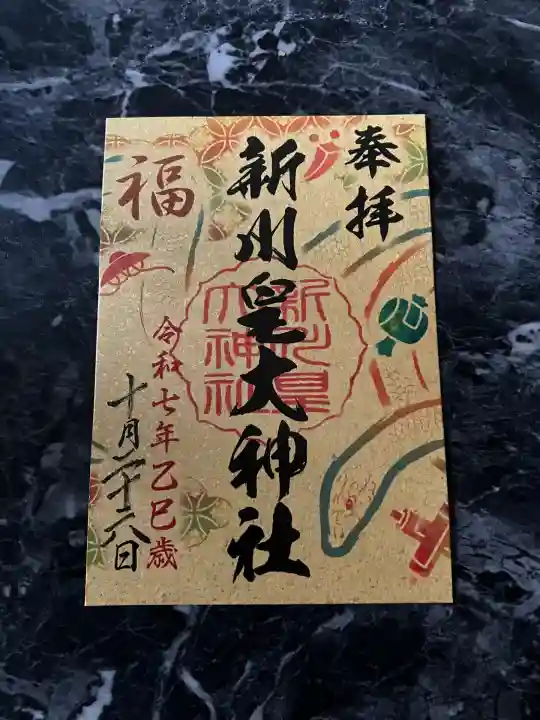 奉拝
新川皇大神社
新川皇
大神社
福
令和七年乙巳歳
十月二十六日